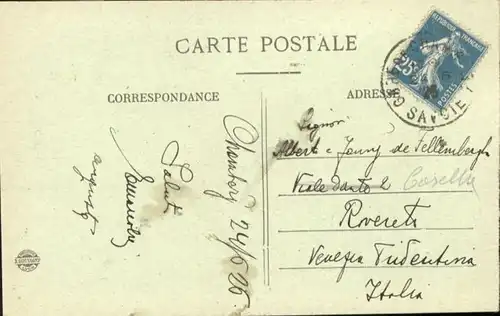 CARTE POSTALE
CORRESPONDANCE
ADRESSE
REPUBLIQUE FRANÇAISE
25c
POSTES
GARE
SAVOIE
Chambéry 24/5 26
Saluti
Signori
Albert e Jenny de Fellenbergh
Viale Dante 2
Rovereto
Venezia Tridentina
Italia